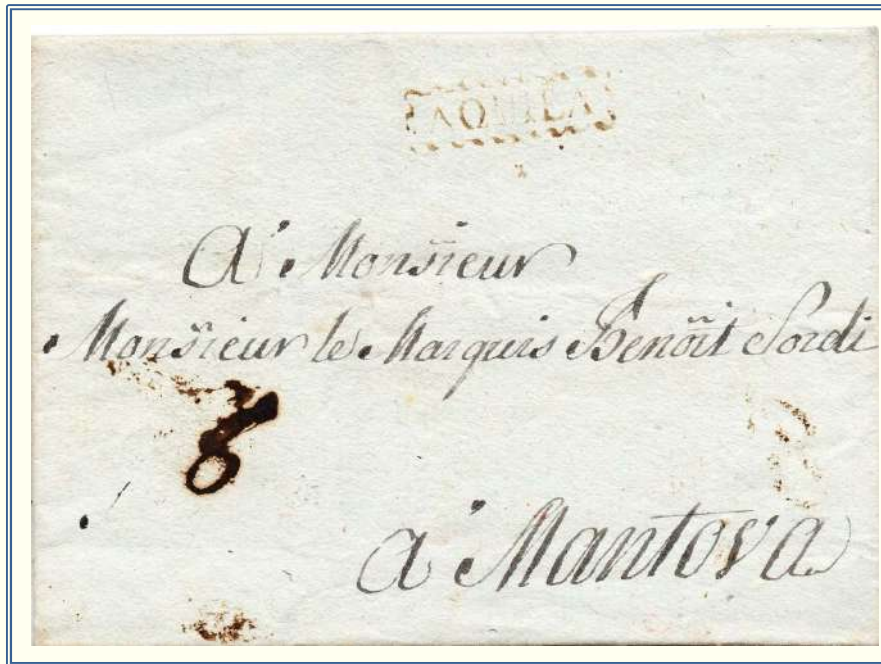 AQUILA
A Monsieur
Monsieur le Marquis Benoît Sordi
8
à Mantova